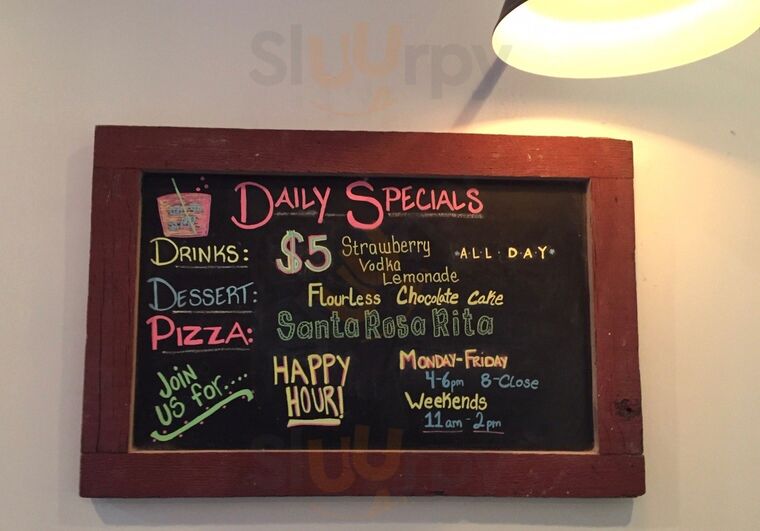 Sluurpy
DAILY SPECIALS
DRINKS: $5 Strawberry Vodka Lemonade •ALL•DAY•
DESSERT: Flourless Chocolate Cake
PIZZA: Santa Rosa Rita
JOIN US for....
HAPPY HOUR!
MONDAY-FRIDAY
4-6pm 8-Close
Weekends
11am-2pm
Sluurpy